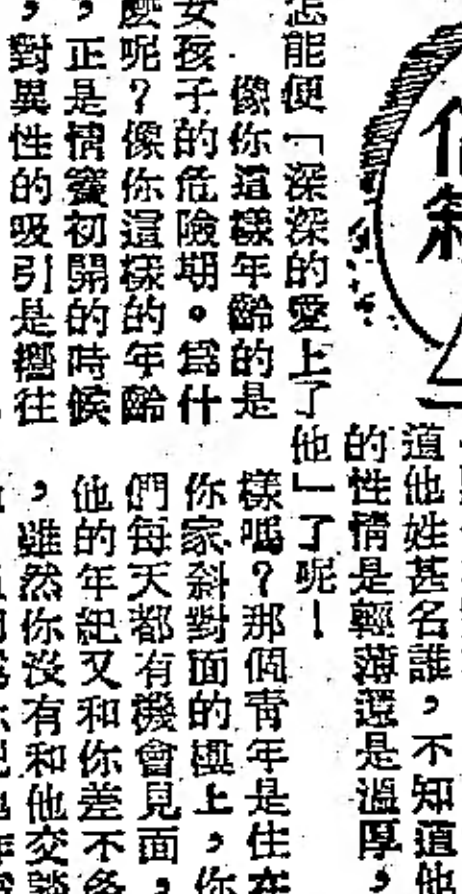 道他姓甚名誰，不知道他
的性情是輕薄還是溫厚，
怎能便「深深的愛上了他」了呢！
像你這樣年齡的是
女孩子的危險期。爲什
麼呢？像你這樣的年齡
，正是情竇初開的時候
，對異性的吸引是嚮往
樣嗎？那個靑年是住在
你家斜對面的樓上，你
們每天都有機會見面，
他的年紀又和你差不多
，雖然你沒有和他交談